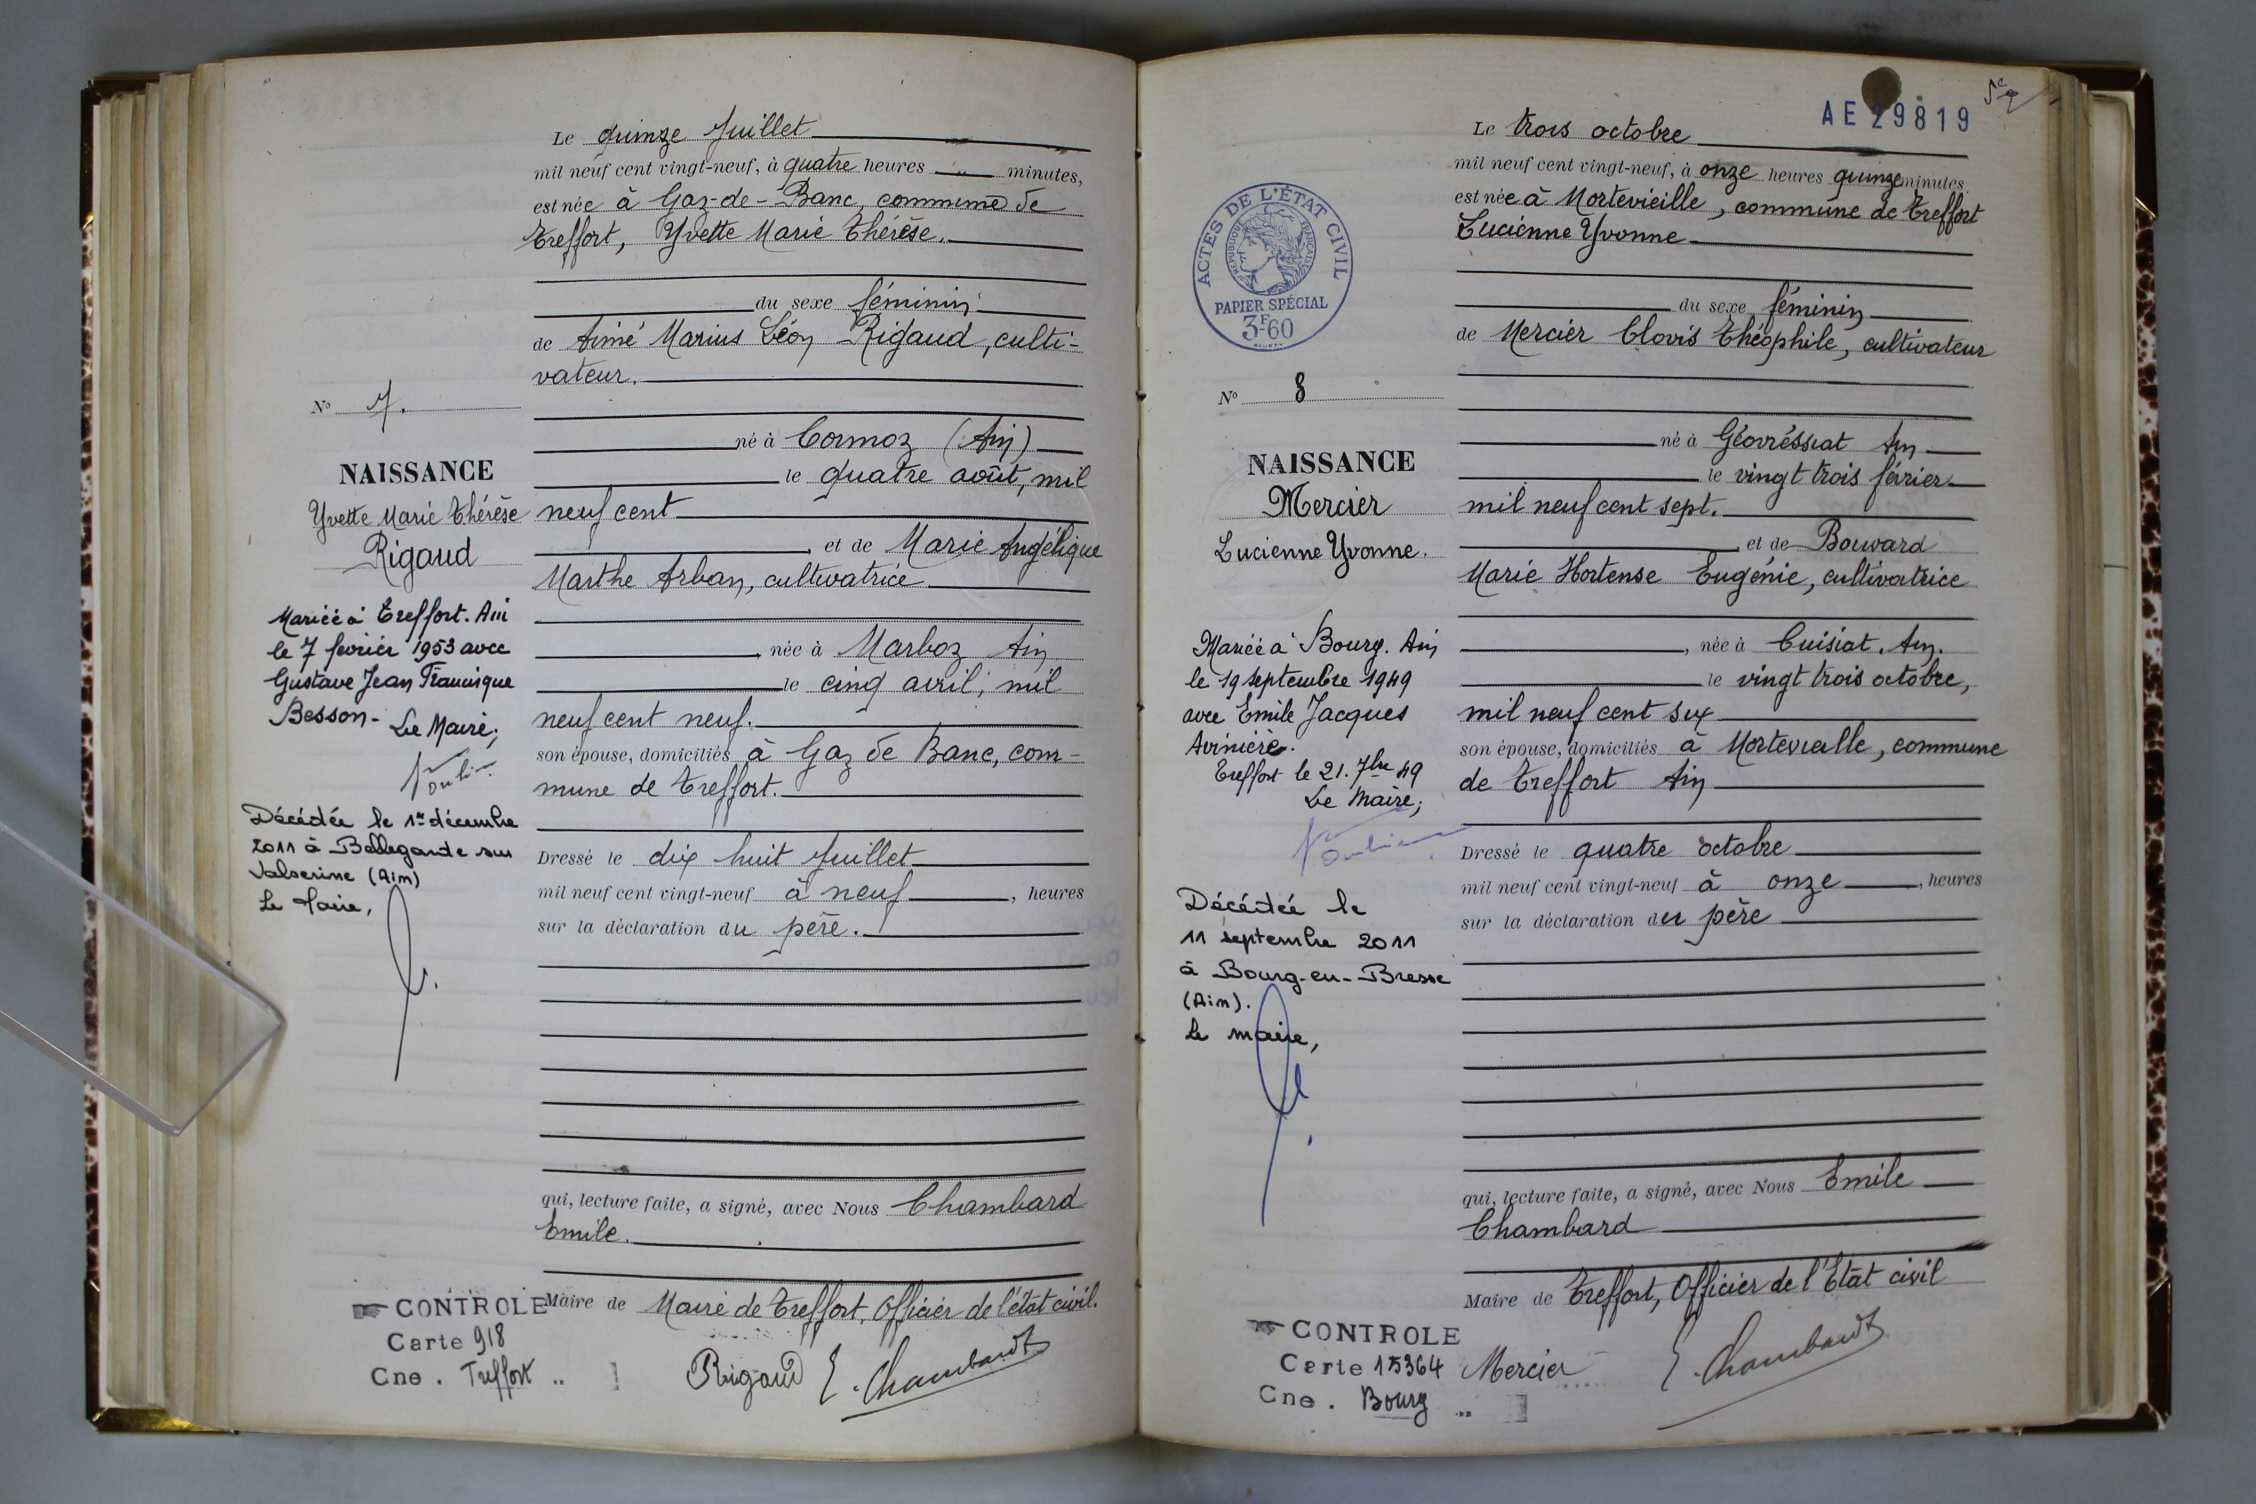 Le quinze Juillet
mil neuf cent vingt-neuf, à quatre heures " minutes,
est née à Gaz-de-Banc, commune de
Treffort, Yvette Marie Thérèse.
du sexe féminin
de Aimé Marius Léon Rigaud, culti-
vateur.
né à Cormoz (Ain)
le quatre août, mil
neuf cent
et de Marie Angélique
Marthe Arban, cultivatrice
, née à Marboz Ain
le cinq avril, mil
neuf cent neuf.
son épouse, domiciliés à Gaz de Banc, com-
mune de Treffort.
Dressé le dix huit Juillet
mil neuf cent vingt-neuf à neuf , heures
sur la déclaration du père.
qui, lecture faite, a signé, avec Nous Chambard
Emile.
Maire de Maire de Treffort, Officier de l'état civil.
Rigaud E. Chambard
N° 7.
NAISSANCE
Yvette Marie Thérèse
Rigaud
Mariée à Treffort. Ain
le 7 février 1953 avec
Gustave Jean Francisque
Besson - Le Maire,
Décédée le 1er décembre
2011 à Bellegarde sur
Valserine (Ain)
Le Maire,
CONTROLE
Carte 918
Cne . Treffort
AE 29819
Le trois octobre
mil neuf cent vingt-neuf, à onze heures quinze minutes
est née à Mortevieille, commune de Treffort
Lucienne Yvonne
du sexe féminin
de Mercier Clovis Théophile, cultivateur
né à Géovréssiat Ain
le vingt trois février
mil neuf cent sept.
et de Bouvard
Marie Hortense Eugénie, cultivatrice
, née à Cuisiat. Ain.
le vingt trois octobre,
mil neuf cent six
son épouse, domiciliés à Mortevieille, commune
de Treffort Ain
Dressé le quatre octobre
mil neuf cent vingt-neuf à onze , heures
sur la déclaration du père
qui, lecture faite, a signé, avec Nous Emile
Chambard
Maire de Treffort, Officier de l'Etat civil
Mercier E. Chambard
ACTES DE L'ÉTAT CIVIL
RÉPUBLIQUE FRANÇAISE
PAPIER SPÉCIAL
3F60
N° 8
NAISSANCE
Mercier
Lucienne Yvonne.
Mariée à Bourg. Ain
le 19 septembre 1949
avec Emile Jacques
Avinière.
Treffort le 21. 7bre 49
Le Maire,
Décédée le
11 septembre 2011
à Bourg-en-Bresse
(Ain).
Le maire,
CONTROLE
Carte 15364
Cne . Bourg